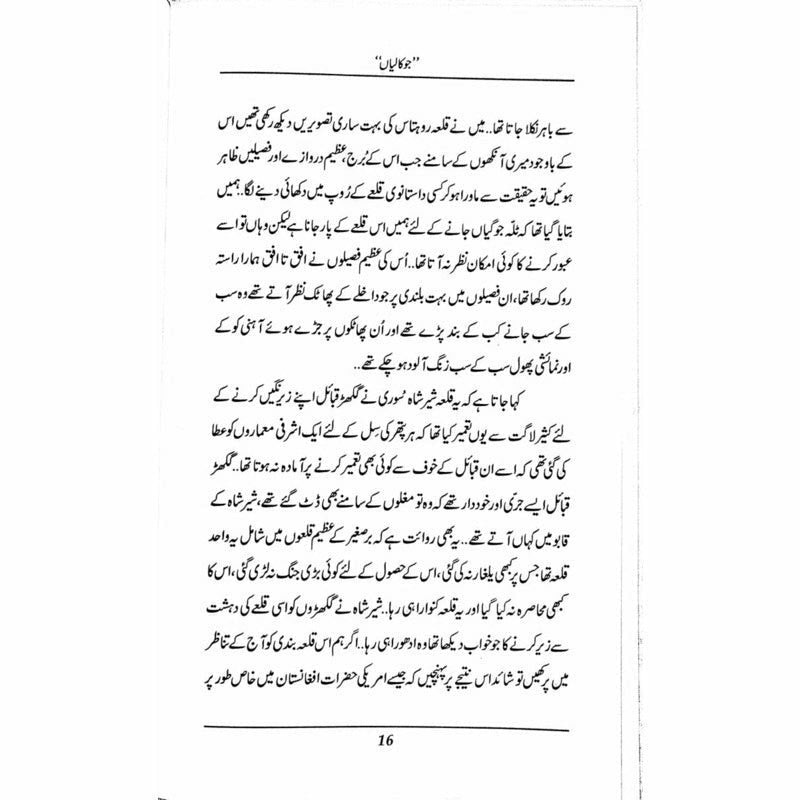 ”جوکالیاں“
سے باہر نکلا جاتا تھا..میں نے قلعہ روہتاس کی بہت ساری تصویریں دیکھ رکھی تھیں اس
کے باوجود میری آنکھوں کے سامنے جب اس کے بُرج، عظیم دروازے اور فصیلیں ظاہر
ہوئیں تو یہ حقیقت سے ماورا ہو کر کسی داستانوی قلعے کے رُوپ میں دکھائی دینے لگا..ہمیں
بتایا گیا تھا کہ ٹلّہ جوگیاں جانے کے لئے ہمیں اس قلعے کے پار جانا ہے لیکن وہاں تو اسے
عبور کرنے کا کوئی امکان نظر نہ آتا تھا..اُس کی عظیم فصیلوں نے افق تا افق ہمارا راستہ
روک رکھا تھا، ان فصیلوں میں بہت بلندی پر جو داخلے کے پھاٹک نظر آتے تھے وہ سب
کے سب جانے کب کے بند پڑے تھے اور اُن پھاٹکوں پر جڑے ہوئے آہنی کوکے
اور نمائشی پھول سب کے سب زنگ آلود ہو چکے تھے..
کہا جاتا ہے کہ یہ قلعہ شیر شاہ سُوری نے گکھڑ قبائل اپنے زیرنگیں کرنے کے
لئے کثیر لاگت سے یوں تعمیر کیا تھا کہ ہر پتھر کی سِل کے لئے ایک اشرفی معماروں کو عطا
کی گئی تھی کہ اسے ان قبائل کے خوف سے کوئی بھی تعمیر کرنے پر آمادہ نہ ہوتا تھا..گکھڑ
قبائل ایسے جرّی اور خوددار تھے کہ وہ تو مغلوں کے سامنے بھی ڈٹ گئے تھے، شیر شاہ کے
قابو میں کہاں آتے تھے..یہ بھی روائت ہے کہ برصغیر کے عظیم قلعوں میں شامل یہ واحد
قلعہ تھا جس پر کبھی یلغار نہ کی گئی، اس کے حصول کے لئے کوئی بڑی جنگ نہ لڑی گئی، اس کا
کبھی محاصرہ نہ کیا گیا اور یہ قلعہ کنوارا ہی رہا..شیر شاہ نے گکھڑوں کو اسی قلعے کی دہشت
سے زیر کرنے کا جو خواب دیکھا تھا وہ ادھورا ہی رہا..اگر ہم اس قلعہ بندی کو آج کے تناظر
میں پرکھیں تو شائد اس نتیجے پر پہنچیں کہ جیسے امریکی حضرات افغانستان میں خاص طور پر
16